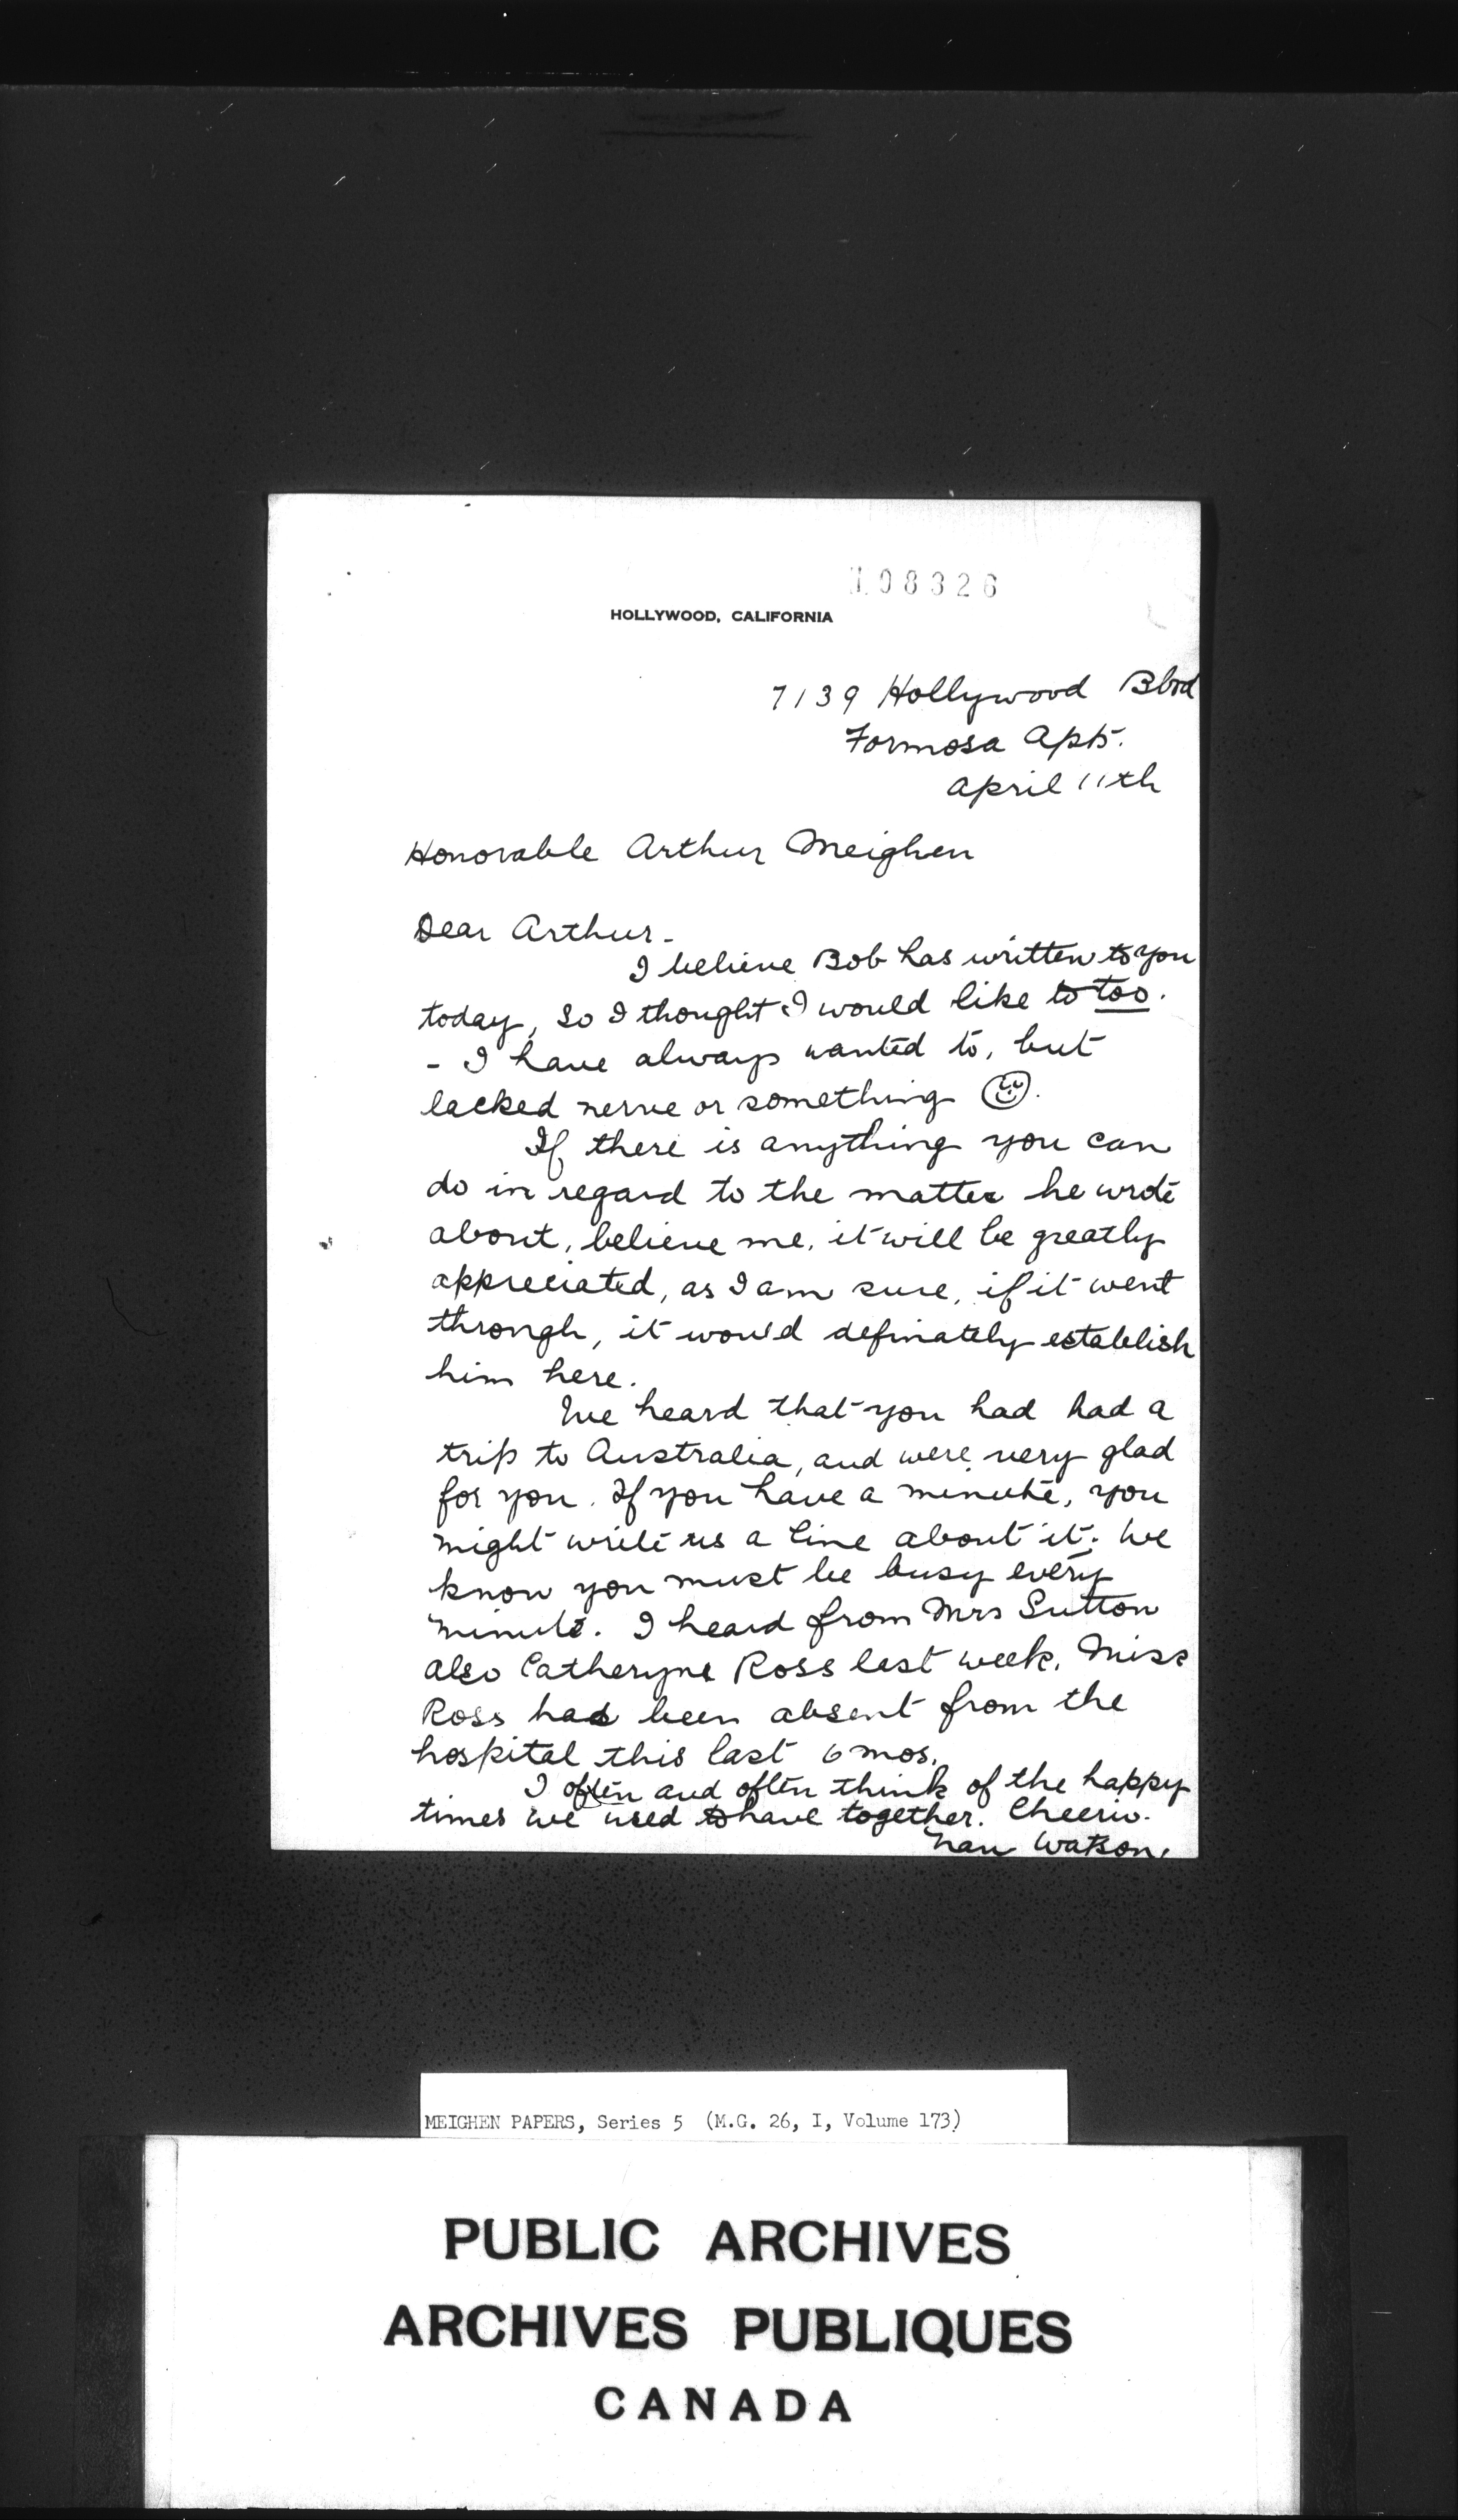 108326
HOLLYWOOD, CALIFORNIA
7139 Hollywood Blvd
Formosa Apts.
April 11th
Honorable Arthur Meighen
Dear Arthur -
I believe Bob has written to you
today, so I thought I would like to too.
- I have always wanted to, but
lacked nerve or something.
If there is anything you can
do in regard to the matter he wrote
about, believe me, it will be greatly
appreciated, as I am sure, if it went
through, it would definately establish
him here.
We heard that you had had a
trip to Australia, and were very glad
for you. If you have a minute, you
might write us a line about it. We
know you must be busy every
minute. I heard from Mrs Sutton
also Catheryne Ross last week. Miss
Ross had been absent from the
hospital this last 6 mos.
I often and often think of the happy
times we used to have together. Cheerio.
Nan Watson.
MEIGHEN PAPERS, Series 5 (M.G. 26, I, Volume 173)
PUBLIC ARCHIVES
ARCHIVES PUBLIQUES
CANADA